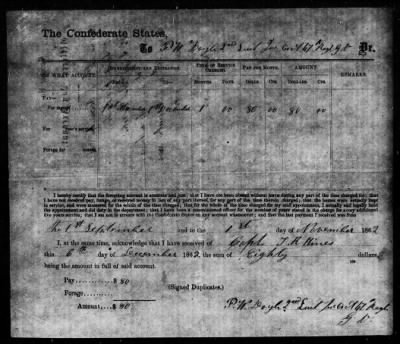 The Confederate States,
To P. W. Doyle 2nd Lieut Dr.
ON WHAT ACCOUNT.
COMMENCEMENT AND EXPIRATION.
TERM OF SERVICE CHARGED.
PAY PER MONTH.
AMOUNT.
REMARKS.
MONTHS. DAYS. DOLLS. CTS. DOLLS. CTS.
PAY—
For myself 1 00 80 00 80 00
For servant
FORAGE for
I hereby certify that the foregoing account is accurate and just; that I have not been absent without leave during any part of the time charged for; that
I have not received pay, forage, or received money in lieu of any part thereof, for any part of the time therein charged; that the horses were actually kept
in service, and were mustered for the whole of the time charged; that for the whole of the time charged for my staff appointment, I actually and legally held
the appointment and did duty in the department; that I have been a commissioned officer for the number of years stated in the charge for every additional
five years service; that I am not in arrears with the Confederate States on any account whatsoever; and that the last payment I received was from
the 1st September and to the 1st day of November 1862
I, at the same time, acknowledge that I have received of Capt. T. R. Hines
this 6th day of December 1862, the sum of Eighty dollars,
being the amount in full of said account.
Pay $ 80
Forage
Amount $ 80
(Signed Duplicates.)
P. W. Doyle 2nd Lieut